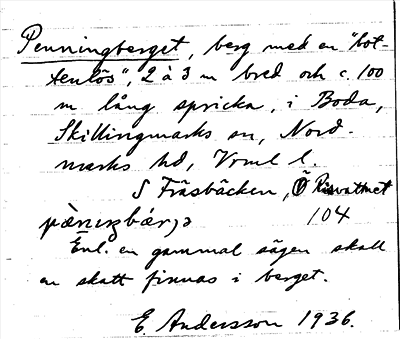 Penningberget, berg med en "bot-
tenlös", 2 à 3 m bred och c. 100
m lång spricka, i Boda,
Skillingmarks sn, Nord-
marks hd, Vrml l.
S Fräsbäcken, Ö Risvattnet
104
pæ̀nuŋbær̨ə
Enl. en gammal sägen skall
en skatt finnas i berget.
E. Andersson 1936.